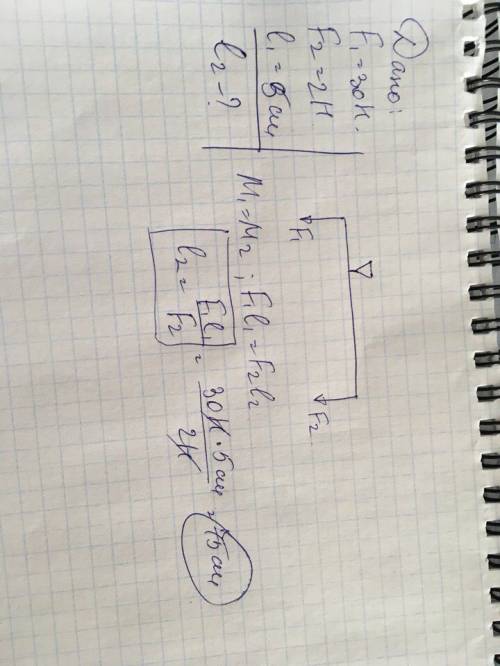 Дано:
F₁=30Н.
F₂=2Н
l₁=5см
l₂-?
F₁
F₂
M₁=M₂; F₁l₁=F₂l₂
l₂= F₁l₁/F₂ = 30Н·5см/2Н = 75см